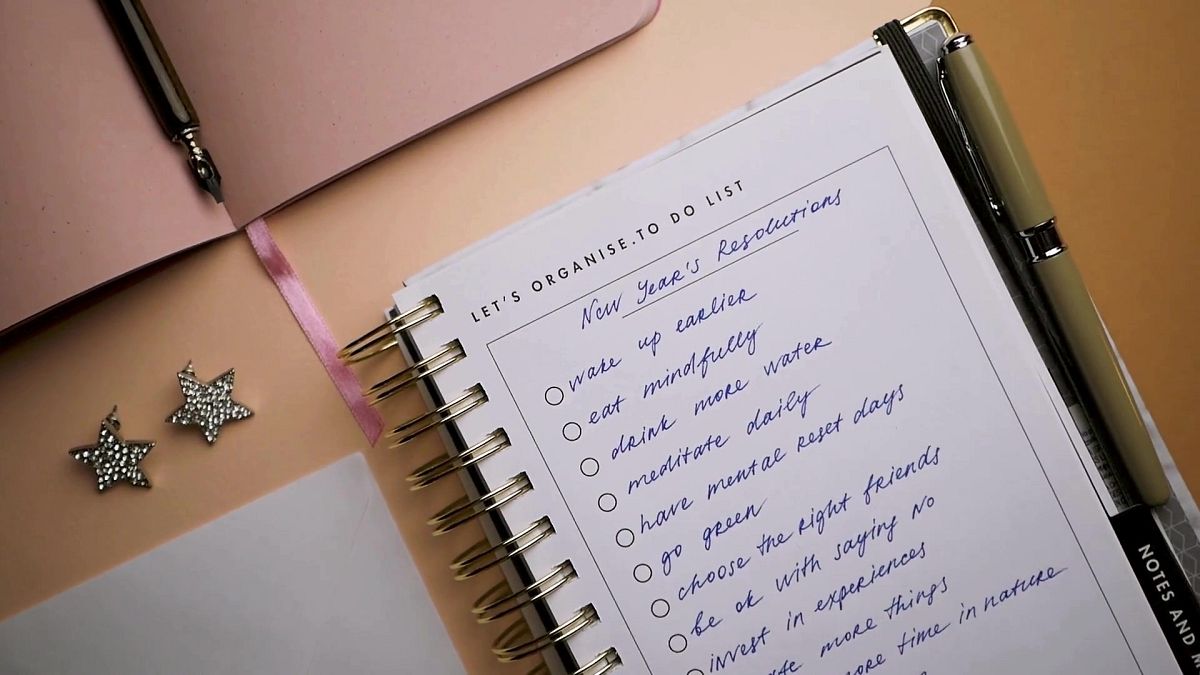 LET'S ORGANISE.TO DO LIST
New Year's Resolutions
wake up earlier
eat mindfully
drink more water
meditate daily
have mental reset days
go green
choose the right friends
be ok with saying NO
invest in experiences
more things
time in nature
NOTES AND